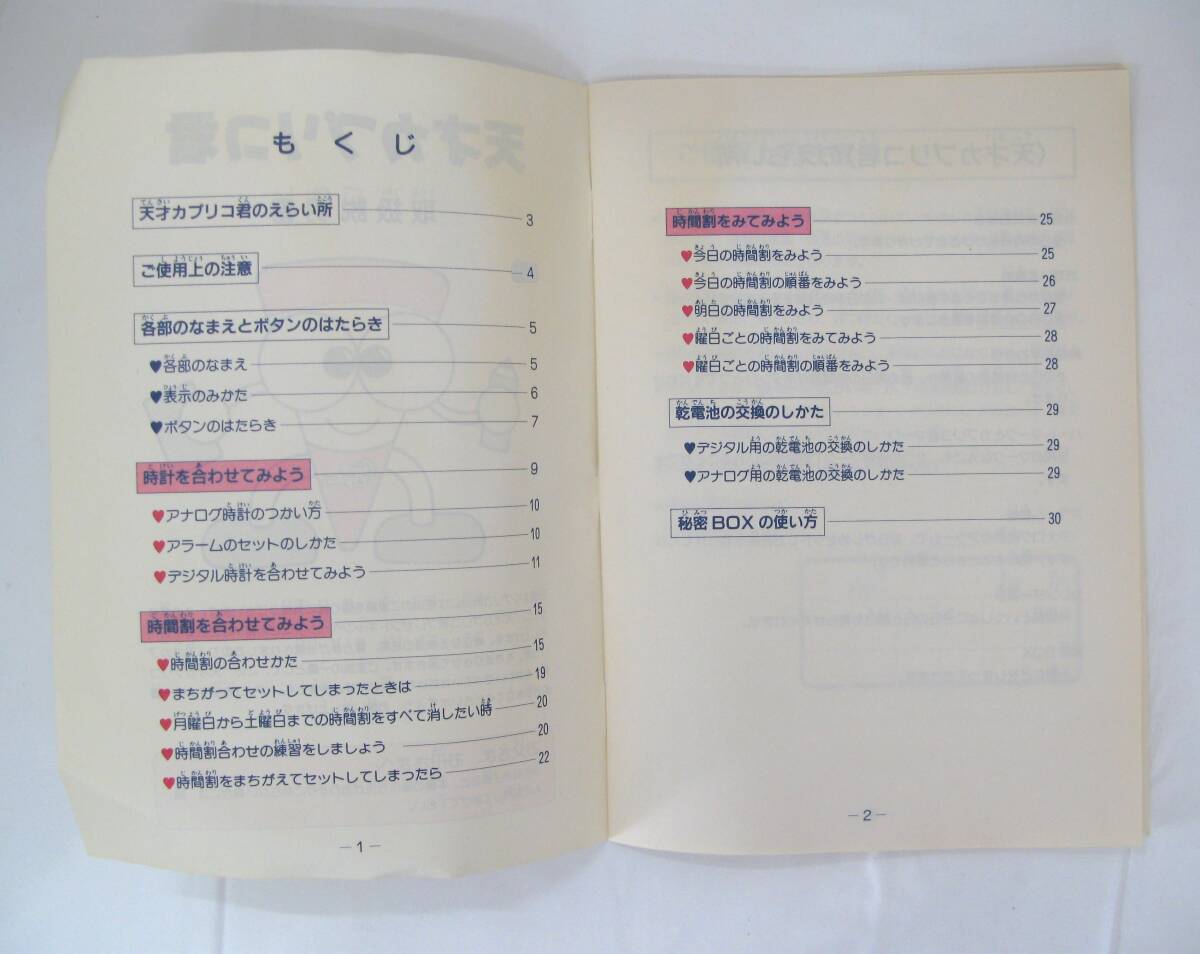 もくじ
天才カプリコ君のえらい所 3
ご使用上の注意 4
各部のなまえとボタンのはたらき 5
♥各部のなまえ 5
♥表示のみかた 6
♥ボタンのはたらき 7
時計を合わせてみよう 9
♥アナログ時計のつかい方 10
♥アラームのセットのしかた 10
♥デジタル時計を合わせてみよう 11
時間割を合わせてみよう 15
♥時間割の合わせかた 15
♥まちがってセットしてしまったときは 19
♥月曜日から土曜日までの時間割をすべて消したい時 20
♥時間割合わせの練習をしましょう 20
♥時間割をまちがえてセットしてしまったら 22
—1—
時間割をみてみよう 25
♥今日の時間割をみよう 25
♥今日の時間割の順番をみよう 26
♥明日の時間割をみよう 27
♥曜日ごとの時間割をみてみよう 28
♥曜日ごとの時間割の順番をみよう 28
乾電池の交換のしかた 29
♥デジタル用の乾電池の交換のしかた 29
♥アナログ用の乾電池の交換のしかた 29
秘密BOXの使い方 30
—2—